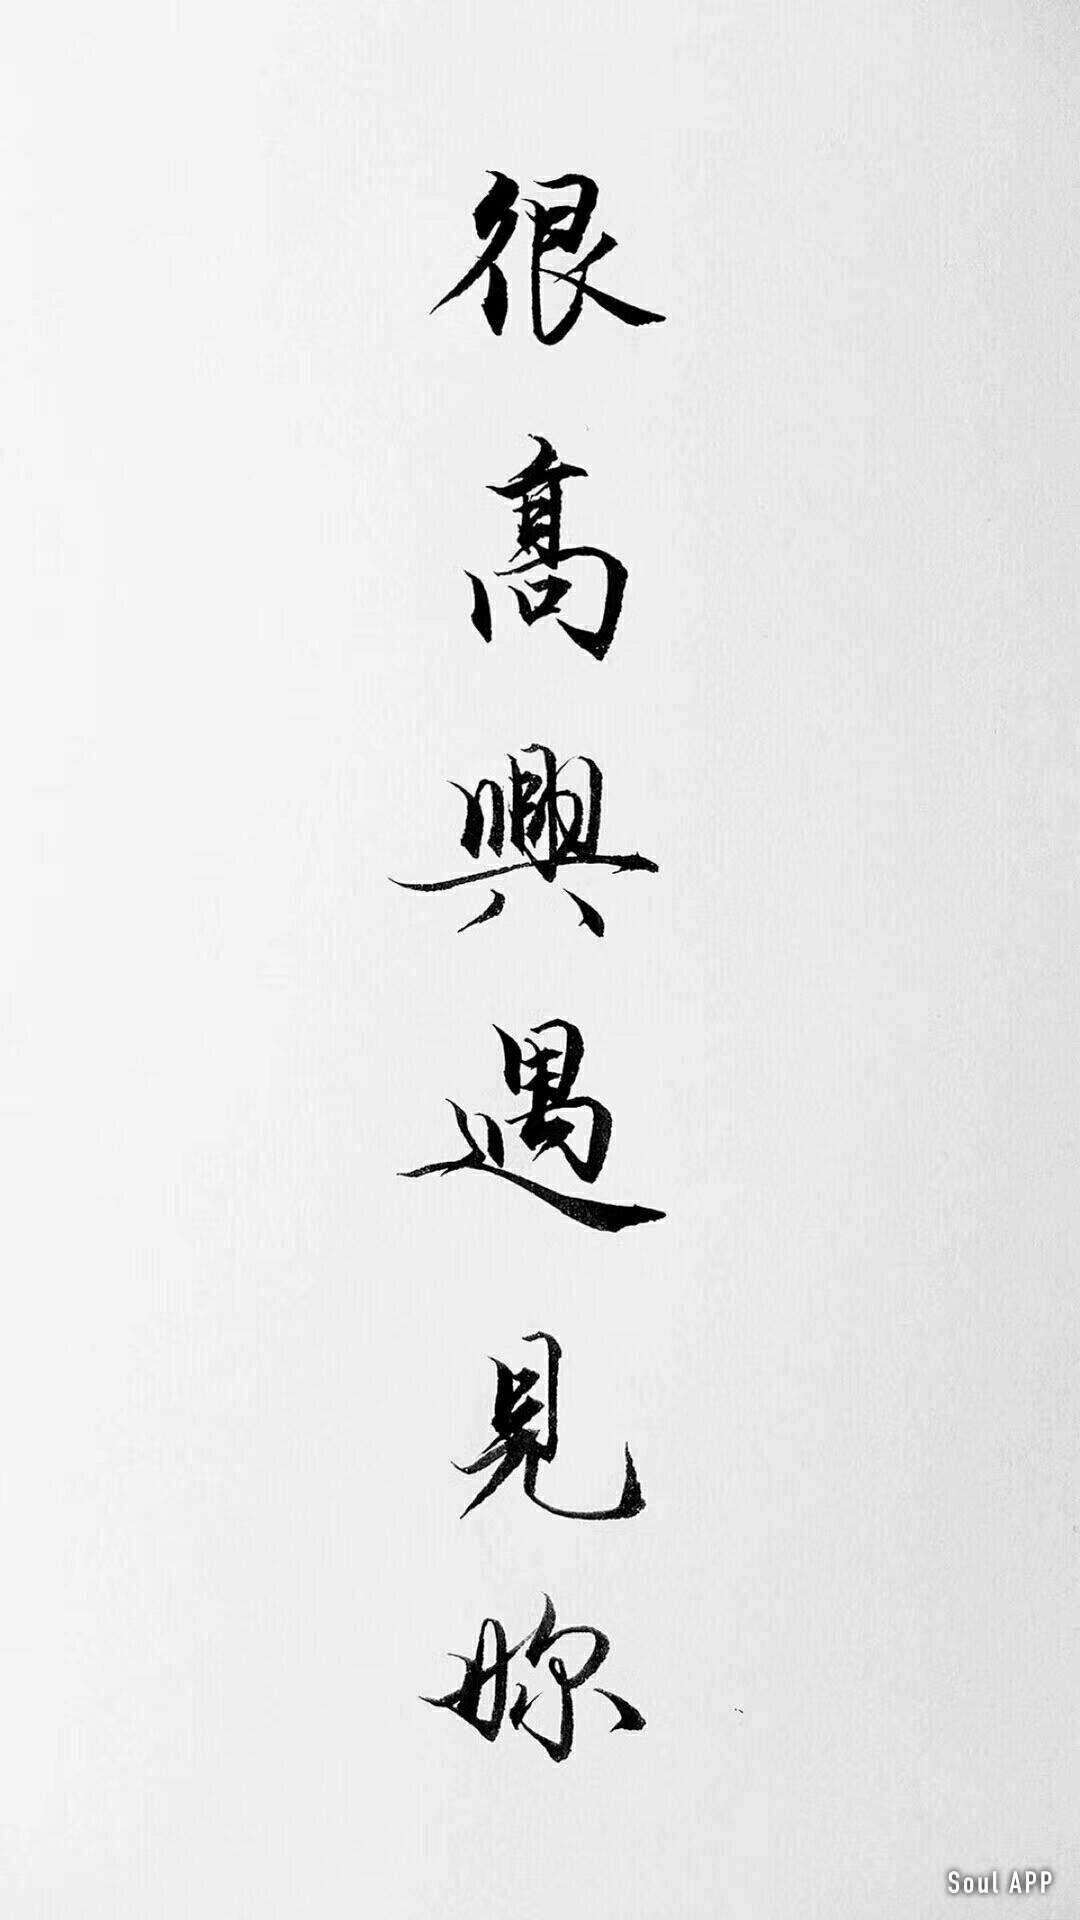 很高興遇見妳
Soul APP